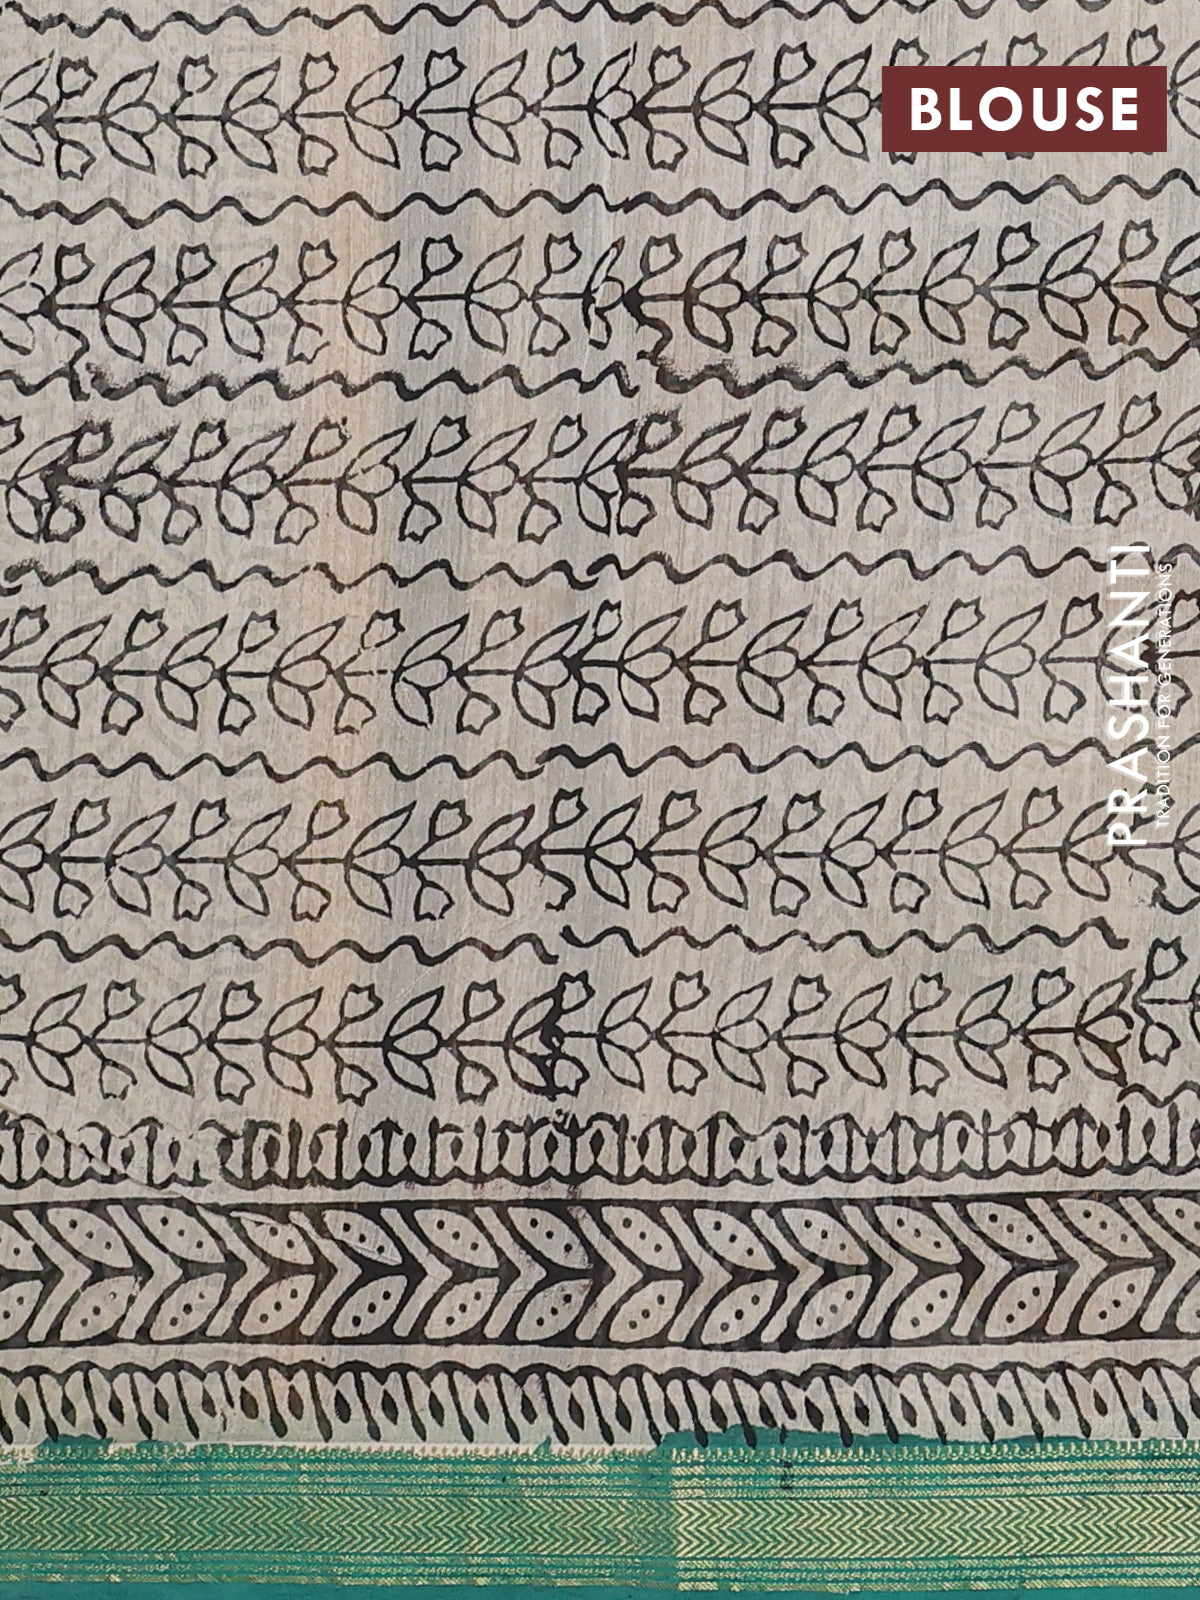 BLOUSE
PRASHANTI
TRADITION FOR GENERATIONS